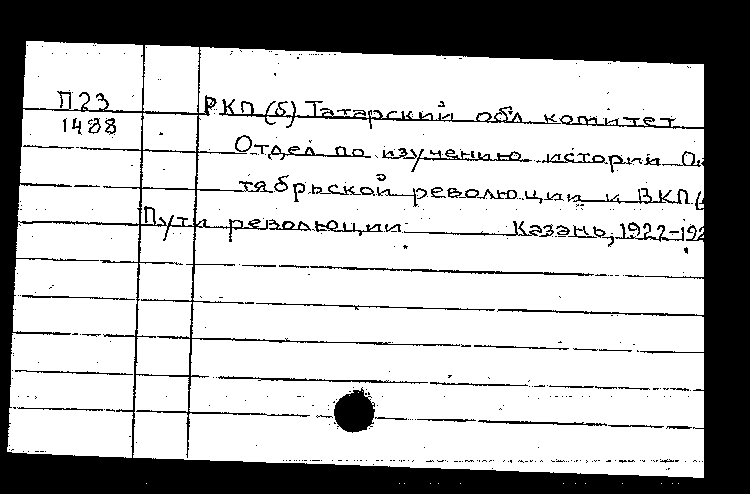 П23
1488
РКП(б) Татарский обл. комитет
Отдел по изучению истории Ок
тябрьской революции и ВКП(
Пути революции Казань, 1922-192